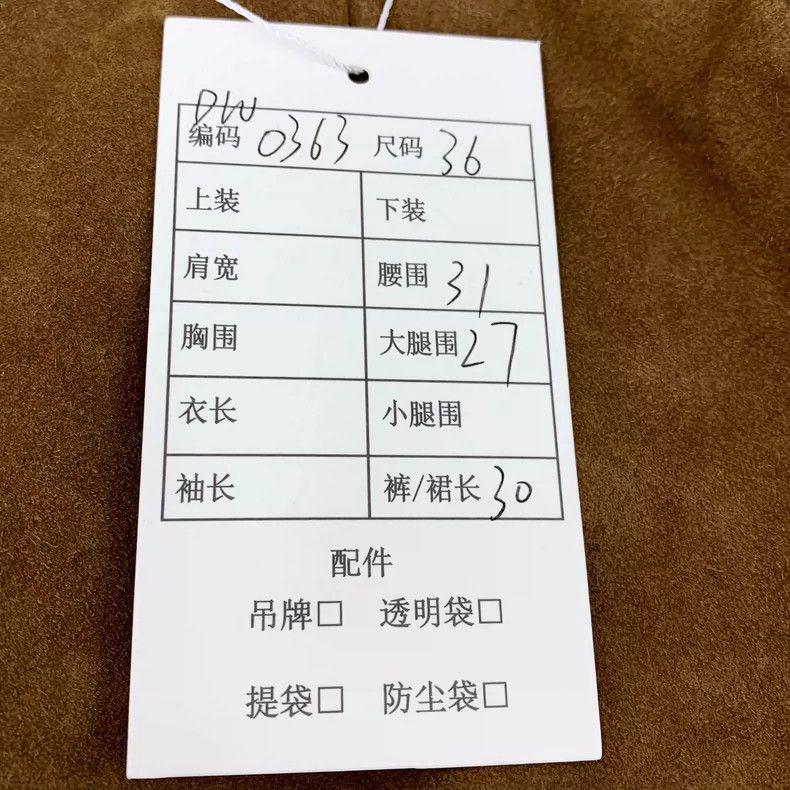 DW
编码 0363 尺码 36
上装 下装
肩宽 腰围 31
胸围 大腿围 27
衣长 小腿围
袖长 裤/裙长 30
配件
吊牌□ 透明袋□
提袋□ 防尘袋□